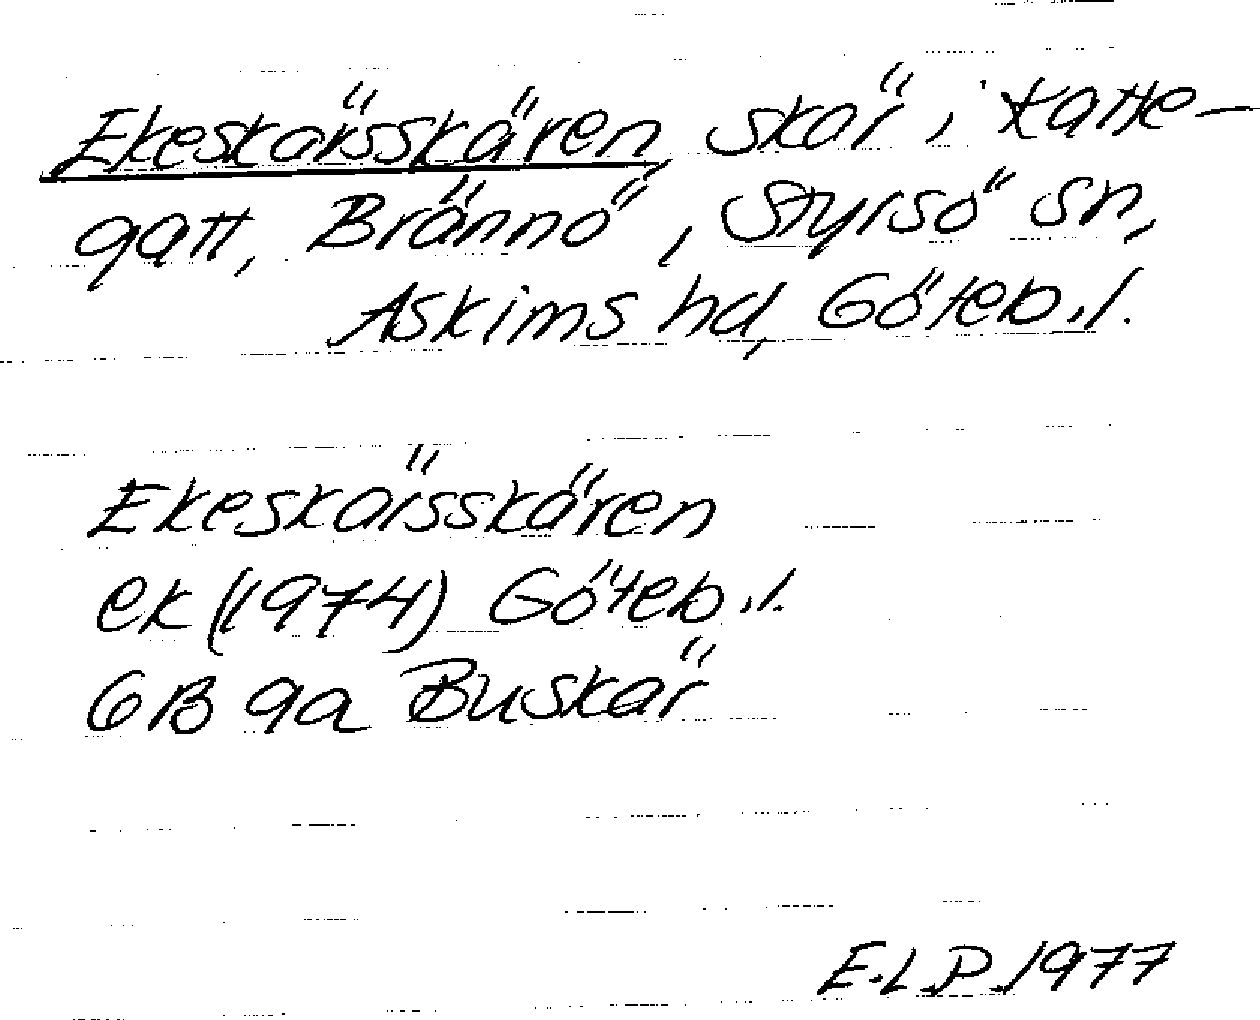 Ekeskärsskären, skär i Katte-
gatt, Brännö, Styrsö sn,
Askims hd, Göteb.l.
Ekeskärsskären
ek (1974) Göteb.l.
6B 9a Buskär
E.L.P. 1977